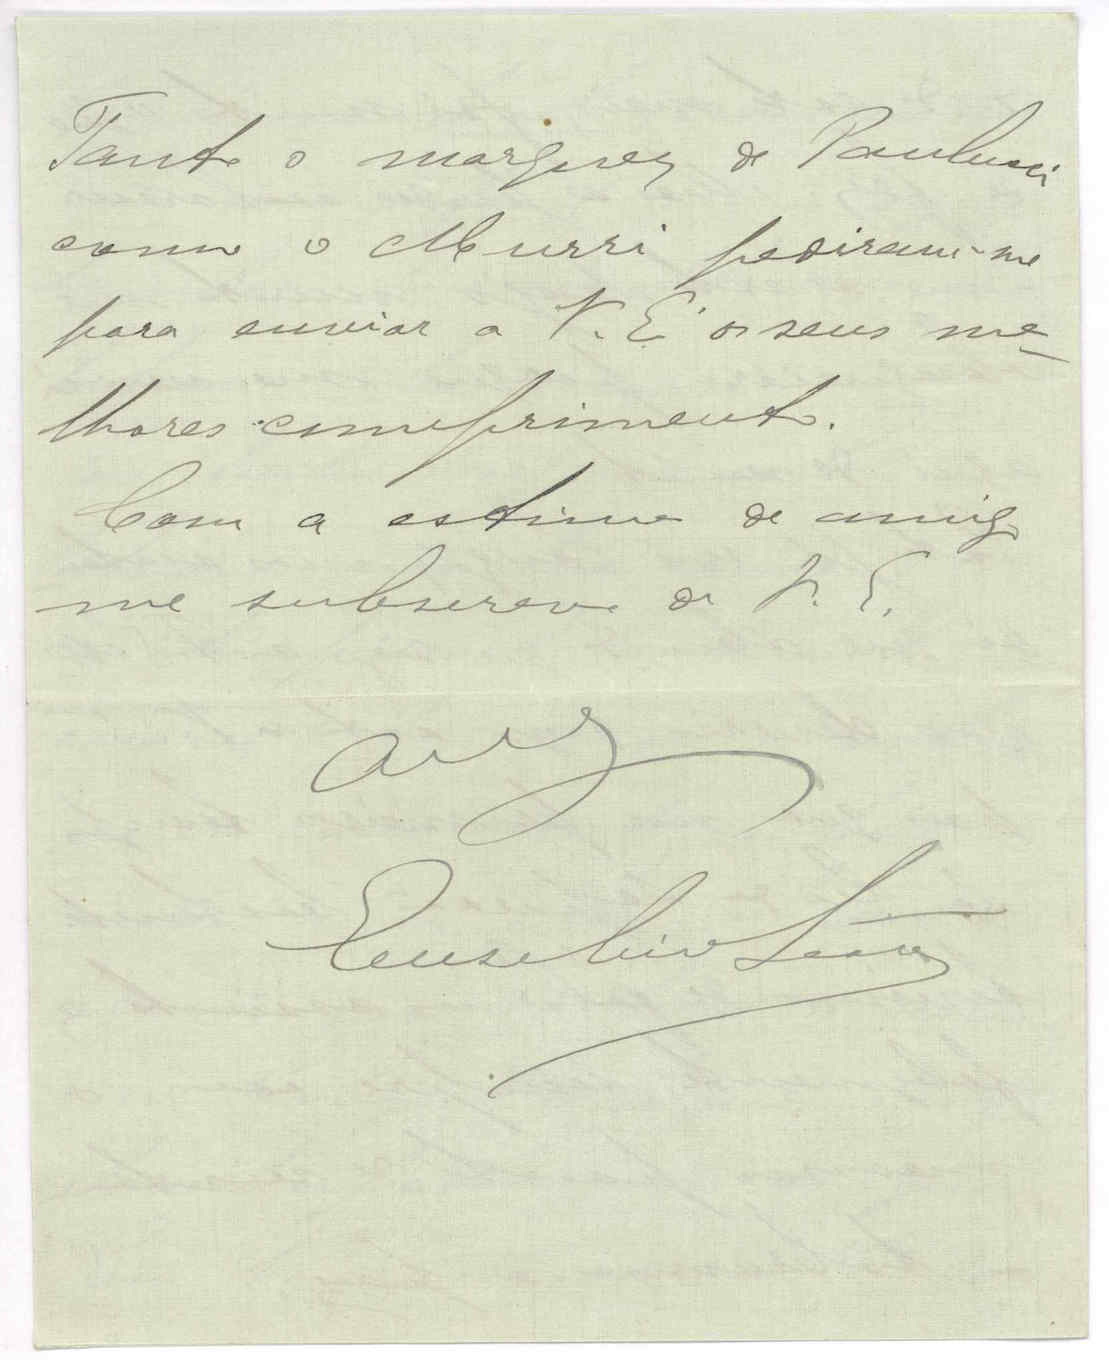 Tanto o marquez de Paulucci
como o Murri pediram-me
para enviar a V. E. os seus me-
lhores comprimentos.
Com a estima de amigo
me subscrevo de V. E.
Eusebio Leão